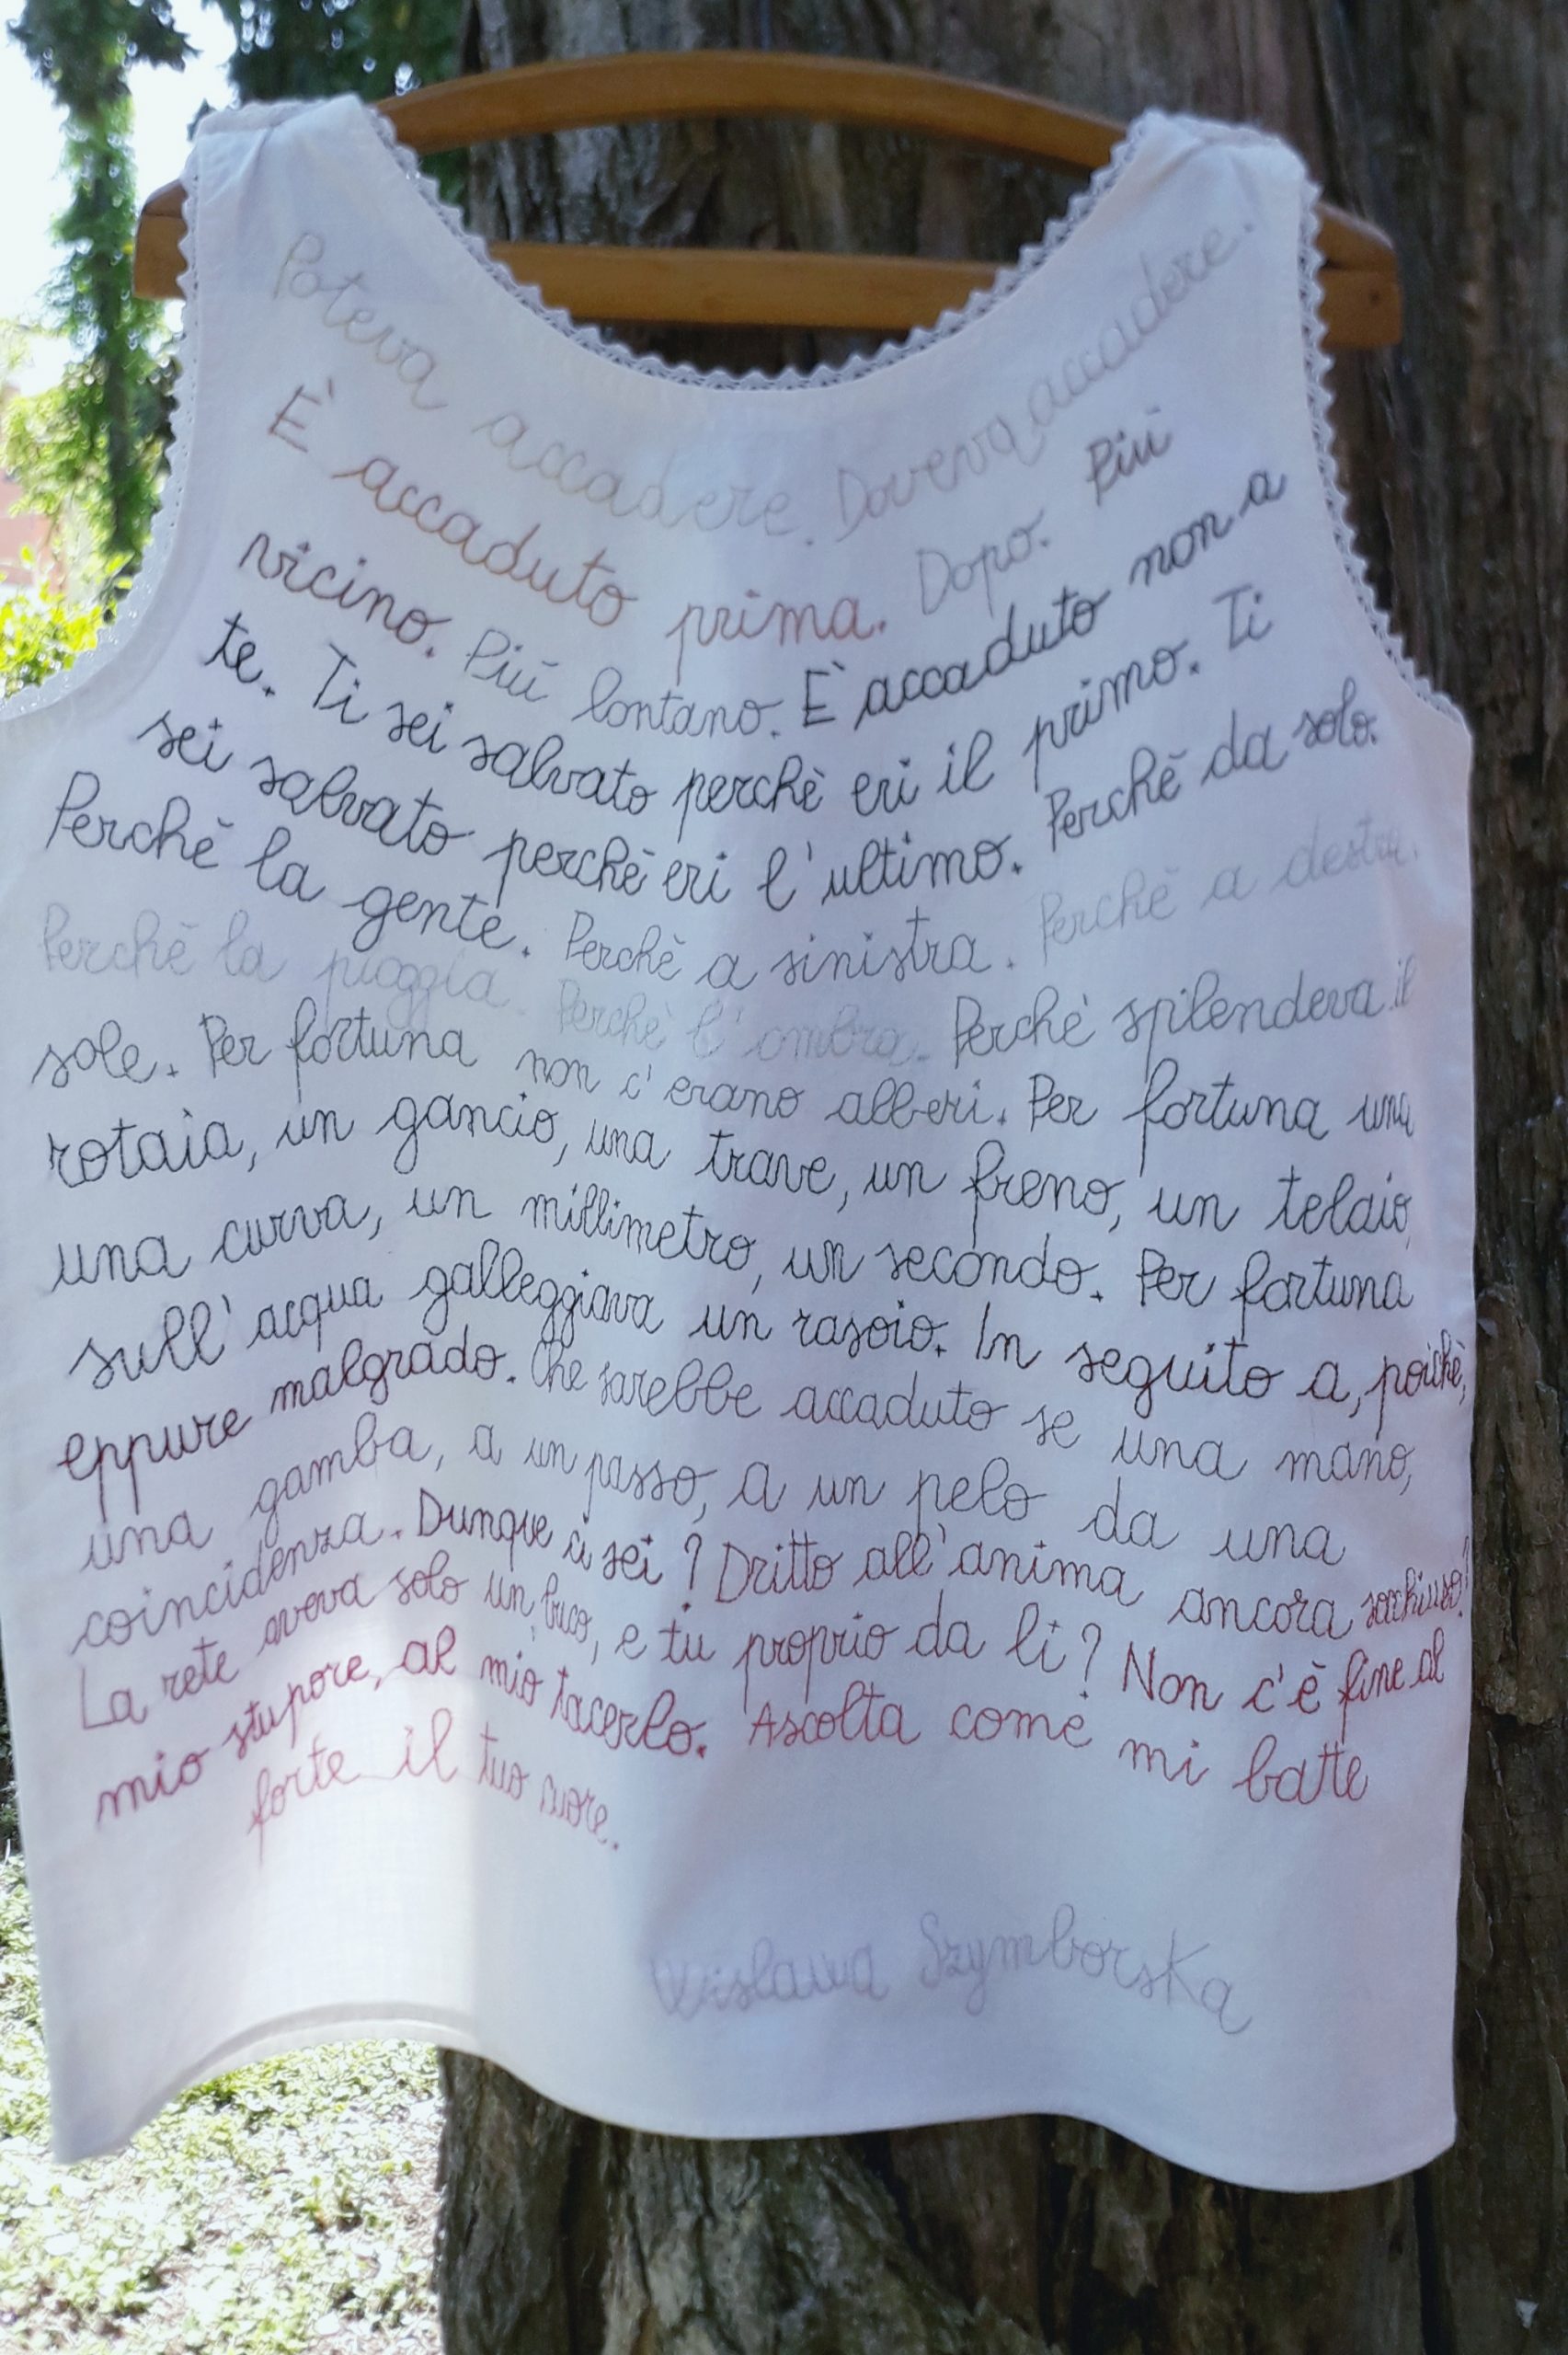 Poteva accadere. Doveva accadere.
È accaduto prima. Dopo. Più
vicino. Più lontano. È accaduto non a
te. Ti sei salvato perchè eri il primo. Ti
sei salvato perchè eri l'ultimo. Perchè da solo.
Perchè la gente. Perchè a sinistra. Perchè a destra.
Perchè la pioggia. Perchè l'ombra. Perchè splendeva il
sole. Per fortuna non c'erano alberi. Per fortuna una
rotaia, un gancio, una trave, un freno, un telaio,
una curva, un millimetro, un secondo. Per fortuna
sull'acqua galleggiava un rasoio. In seguito a, poichè,
eppure malgrado. Che sarebbe accaduto se una mano,
una gamba, a un passo, a un pelo da una
coincidenza. Dunque ci sei? Dritto all'anima ancora socchiuso?
La rete aveva solo un buco, e tu proprio da lì? Non c'è fine al
mio stupore, al mio tacerlo. Ascolta come mi batte
forte il tuo cuore.
Wislawa Szymborska